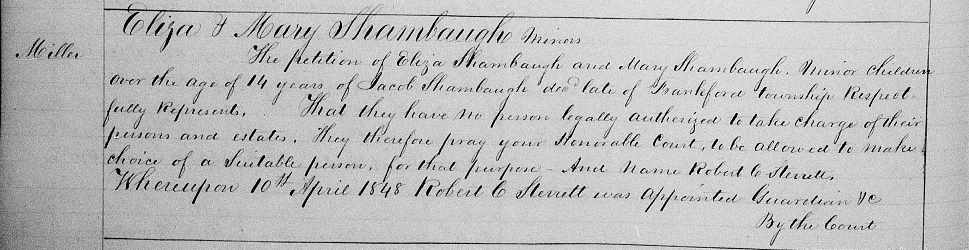 Eliza & Mary Shambaugh Minors
Miller
The petition of Eliza Shambaugh and Mary Shambaugh. Minor children
over the age of 14 years of Jacob Shambaugh decd late of Frankford township Respect-
fully Represents. That they have no person legally authorized to take charge of their
persons and estates. They therefore pray your Honorable Court, to be allowed to make
choice of a Suitable person, for that purpose - And Name Robert C Sterrett.
Whereupon 10th April 1848 Robert C Sterrett was appointed Guardian &c
By the Court